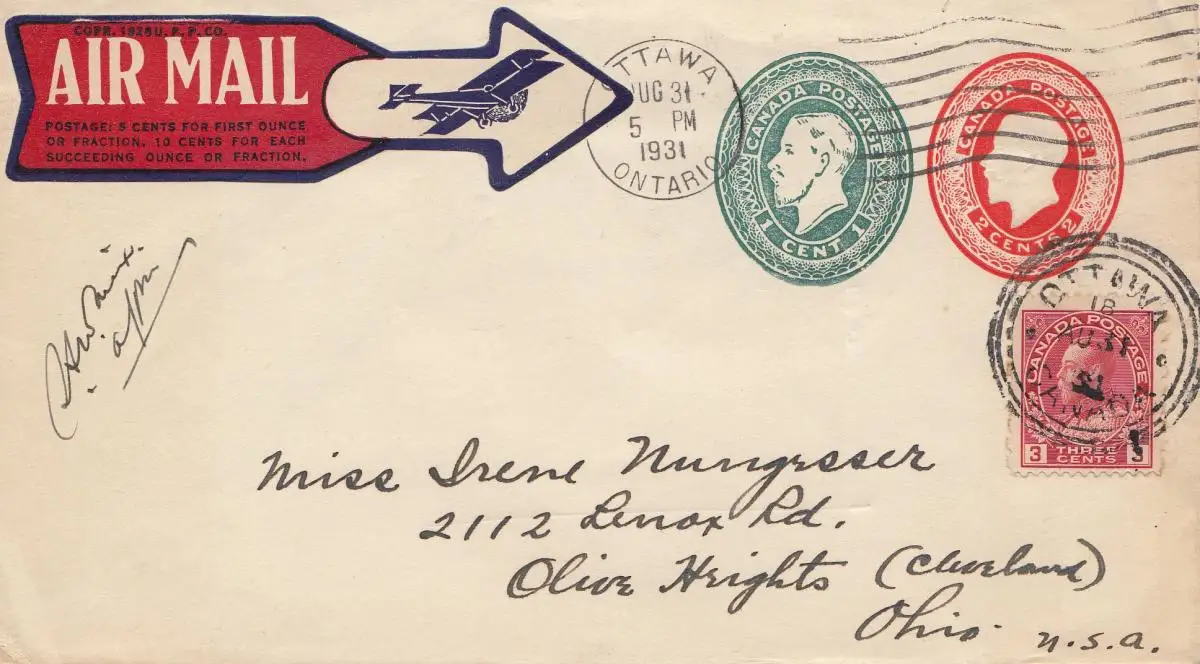 COPR. 1928 U. P. P. CO.
AIR MAIL
POSTAGE: 5 CENTS FOR FIRST OUNCE
OR FRACTION. 10 CENTS FOR EACH
SUCCEEDING OUNCE OR FRACTION.
OTTAWA
AUG 31
5 PM
1931
ONTARIO
CANADA POSTAGE
1 CENT 1
CANADA POSTAGE
2 CENTS 2
OTTAWA
18
AU 31
31
CANADA
CANADA POSTAGE
3 THREE 3
CENTS
Miss Irene Nungesser
2112 Lenox Rd.
Olive Heights (Cleveland)
Ohio. U.S.A.